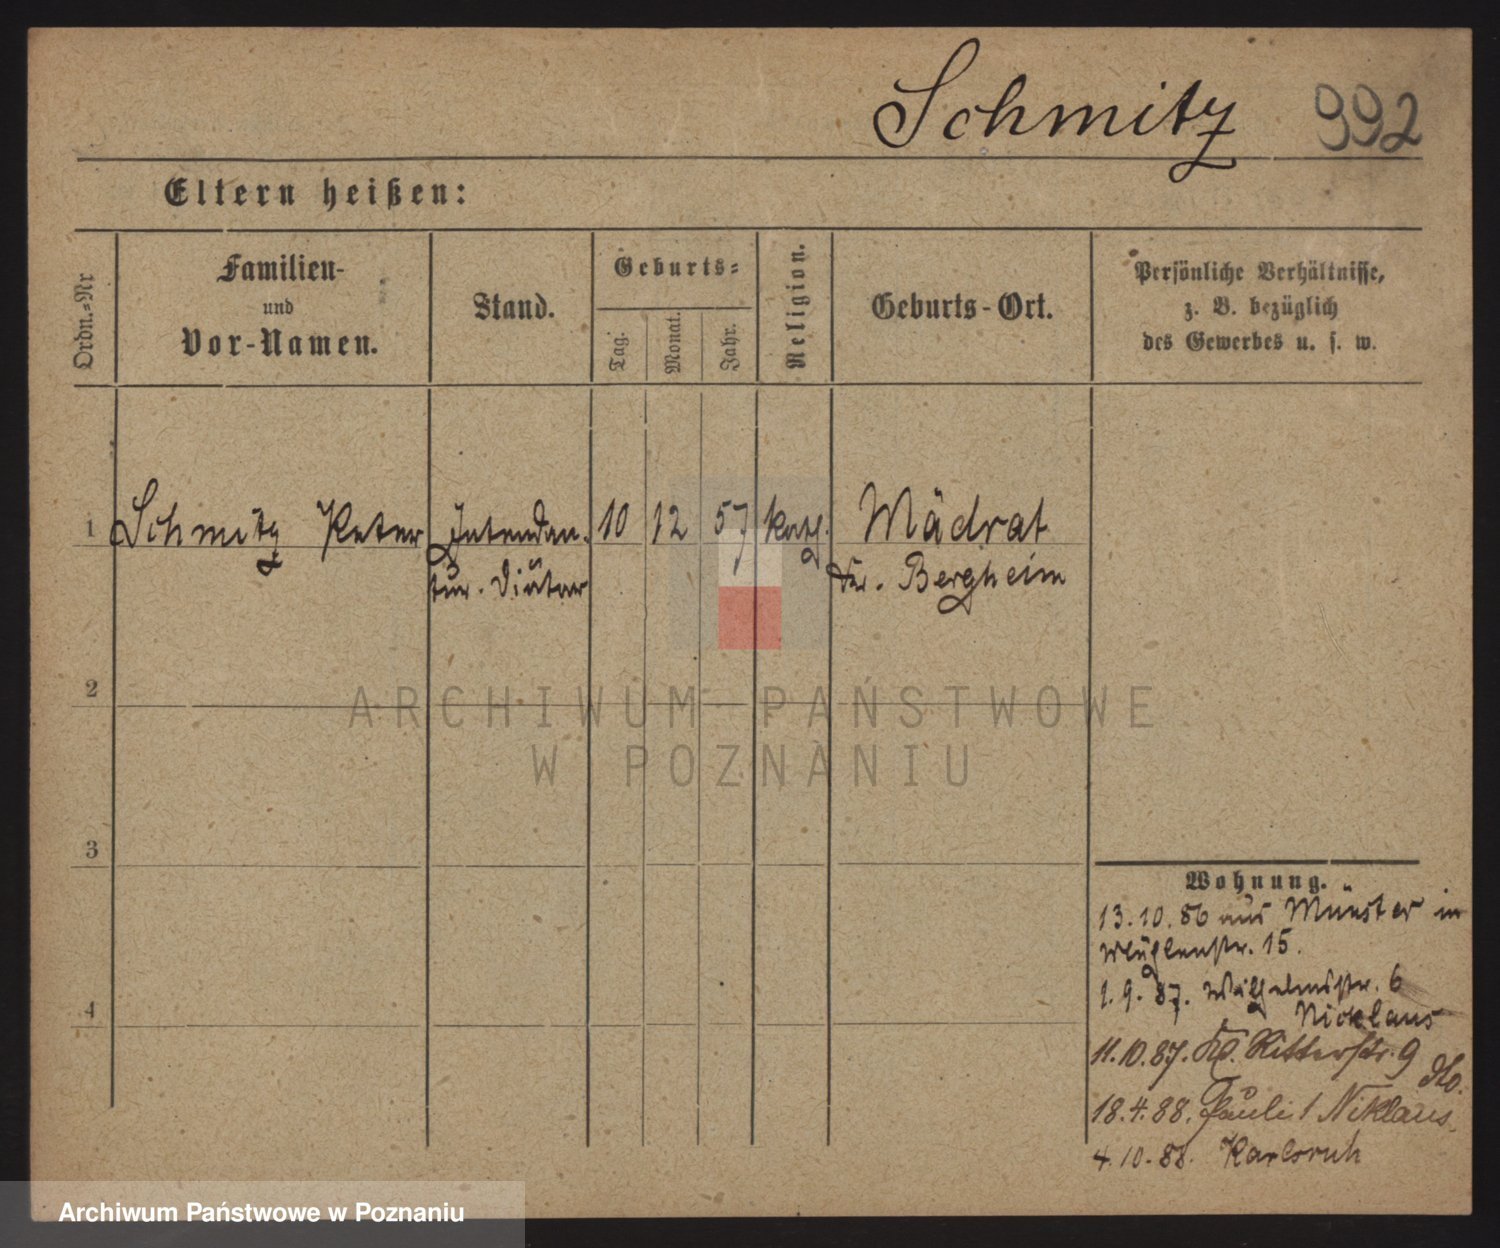 Schmitz 992
Eltern heißen:
Ordn.-Nr
Familien-
und
Vor-Namen.
Stand.
Geburts-
Tag.
Monat.
Jahr.
Religion.
Geburts-Ort.
Persönliche Verhältnisse,
z. B. bezüglich
des Gewerbes u. s. w.
1 Schmitz Peter Intendan- 10 12 57 kath. Mädrat
tur. Diätar Kr. Bergheim
2
3
4
Wohnung.
13.10.86 aus Münster in
Mühlenstr. 15.
1.9.87. Wilhelmstr. 6
Nicklaus
11.10.87. Ritterstr. 9
dto.
18.4.88. Pauli 1 Niklaus.
4.10.88. Karlsruh
ARCHIWUM PAŃSTWOWE
W POZNANIU
Archiwum Państwowe w Poznaniu